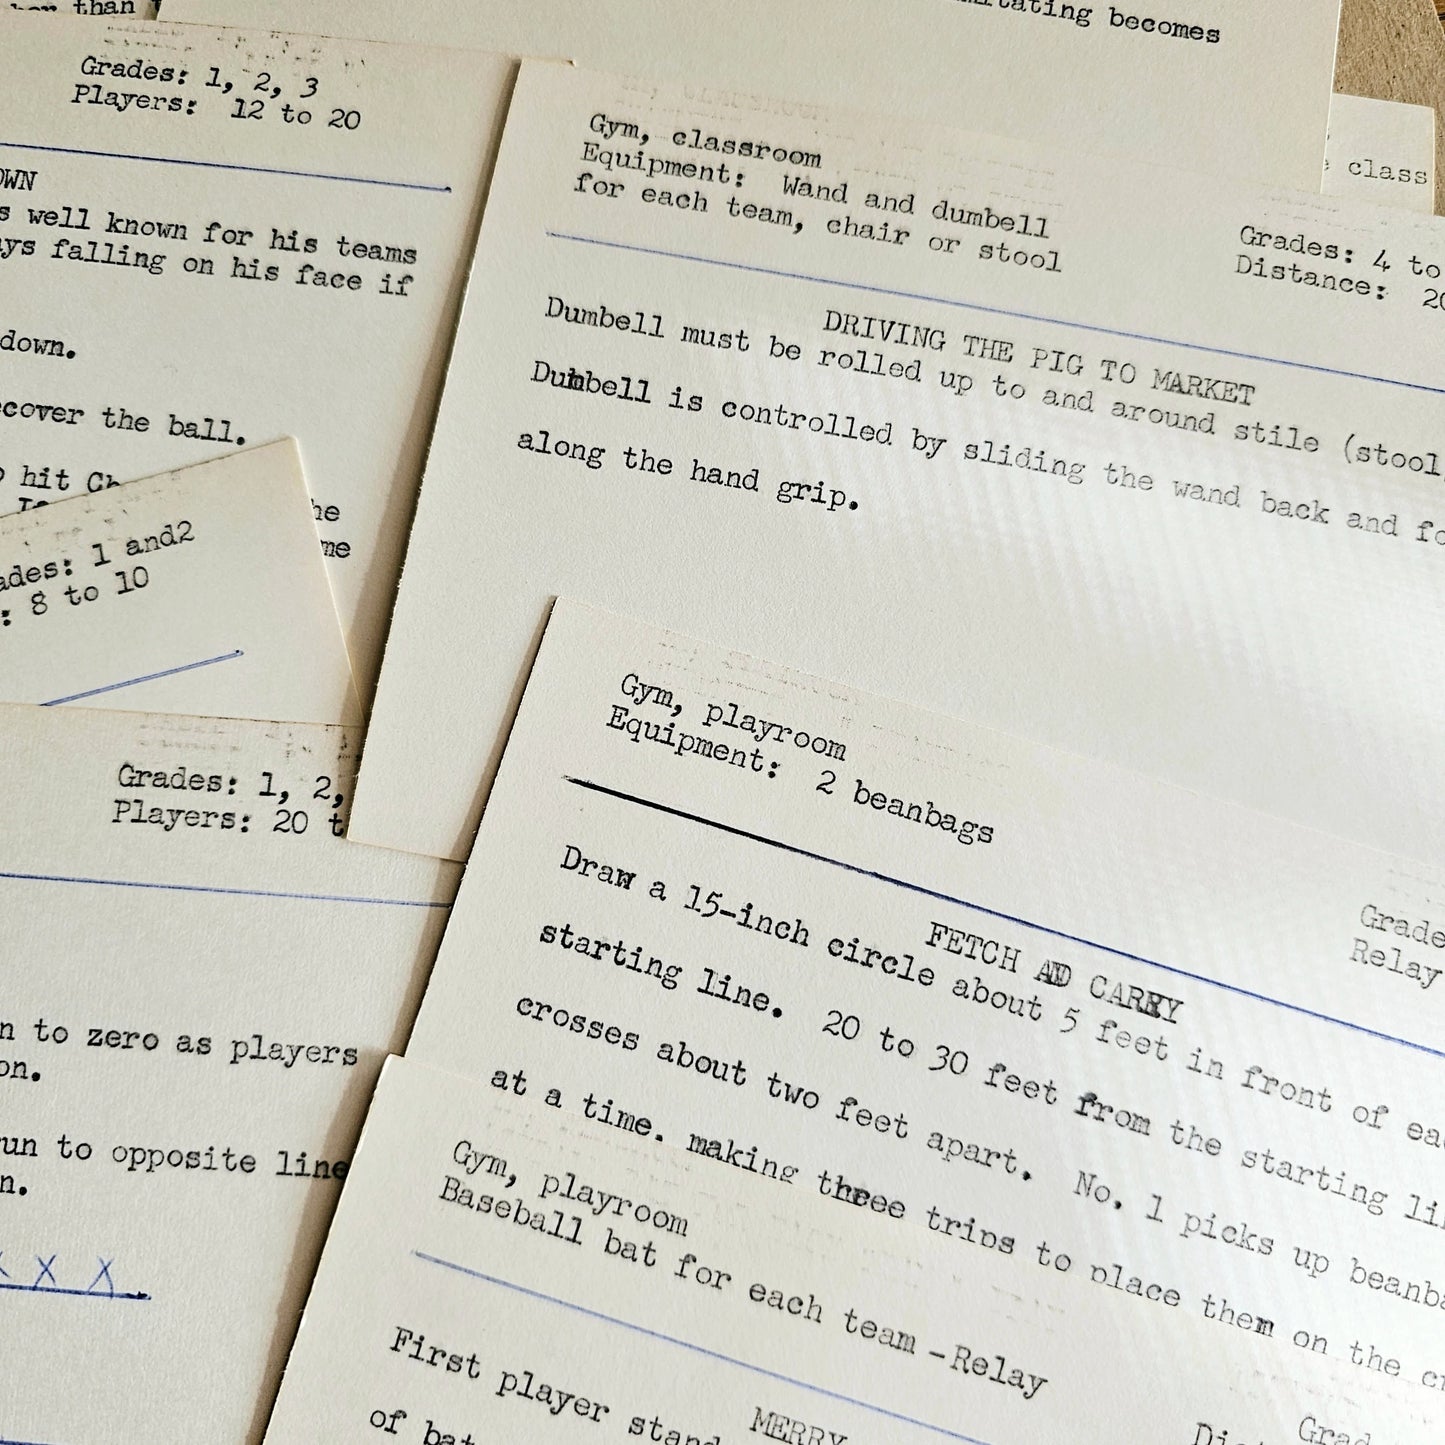 than
imitating becomes
Grades: 1, 2, 3
Players: 12 to 20
well known for his teams
falling on his face if
down.
the ball.
hit
Grades: 1 and2
: 8 to 10
Grades: 1, 2,
Players: 20
to zero as players
to opposite line
X X
class
Gym, classroom
Equipment: Wand and dumbell
for each team, chair or stool
Grades: 4 to
Distance:
DRIVING THE PIG TO MARKET
Dumbell must be rolled up to and around stile (stool,
Dumbell is controlled by sliding the wand back and
along the hand grip.
Gym, playroom
Equipment: 2 beanbags
Relay
FETCH AND CARRY
Draw a 15-inch circle about 5 feet in front of
starting line. 20 to 30 feet from the starting
crosses about two feet apart. No. 1 picks up
at a time. making three trips to place them on the
Gym, playroom
Baseball bat for each team -Relay
MERRY
First player
of